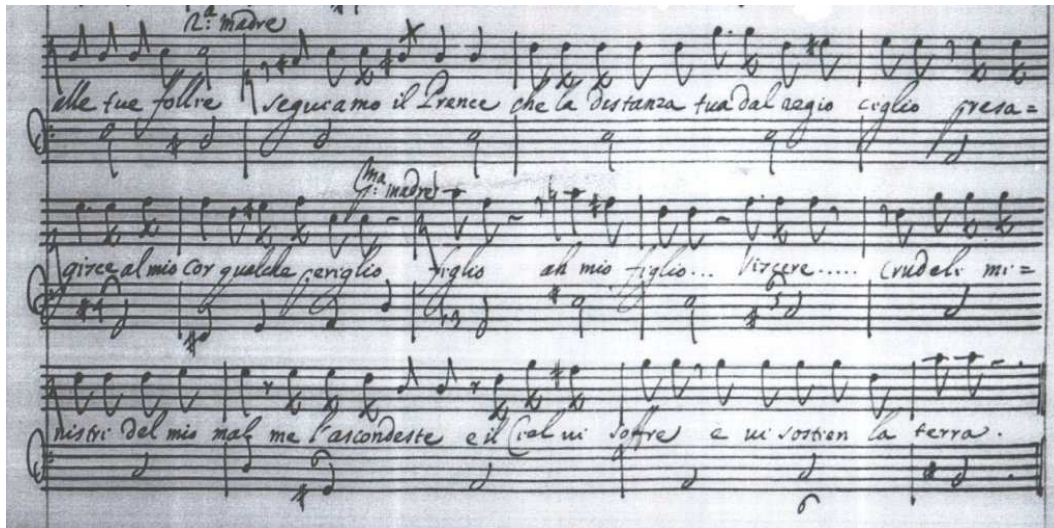 2.ª madre
alle tue follie seguiamo il Prence che la distanza tua dal regio ciglio presa=
ma: madre
gisce al mio Cor qualche periglio figlio ah mio figlio... Viscere..... Crudeli mi=
nistri del mio mal, me l'ascondeste e il Ciel vi soffre e vi sostien la terra.
6